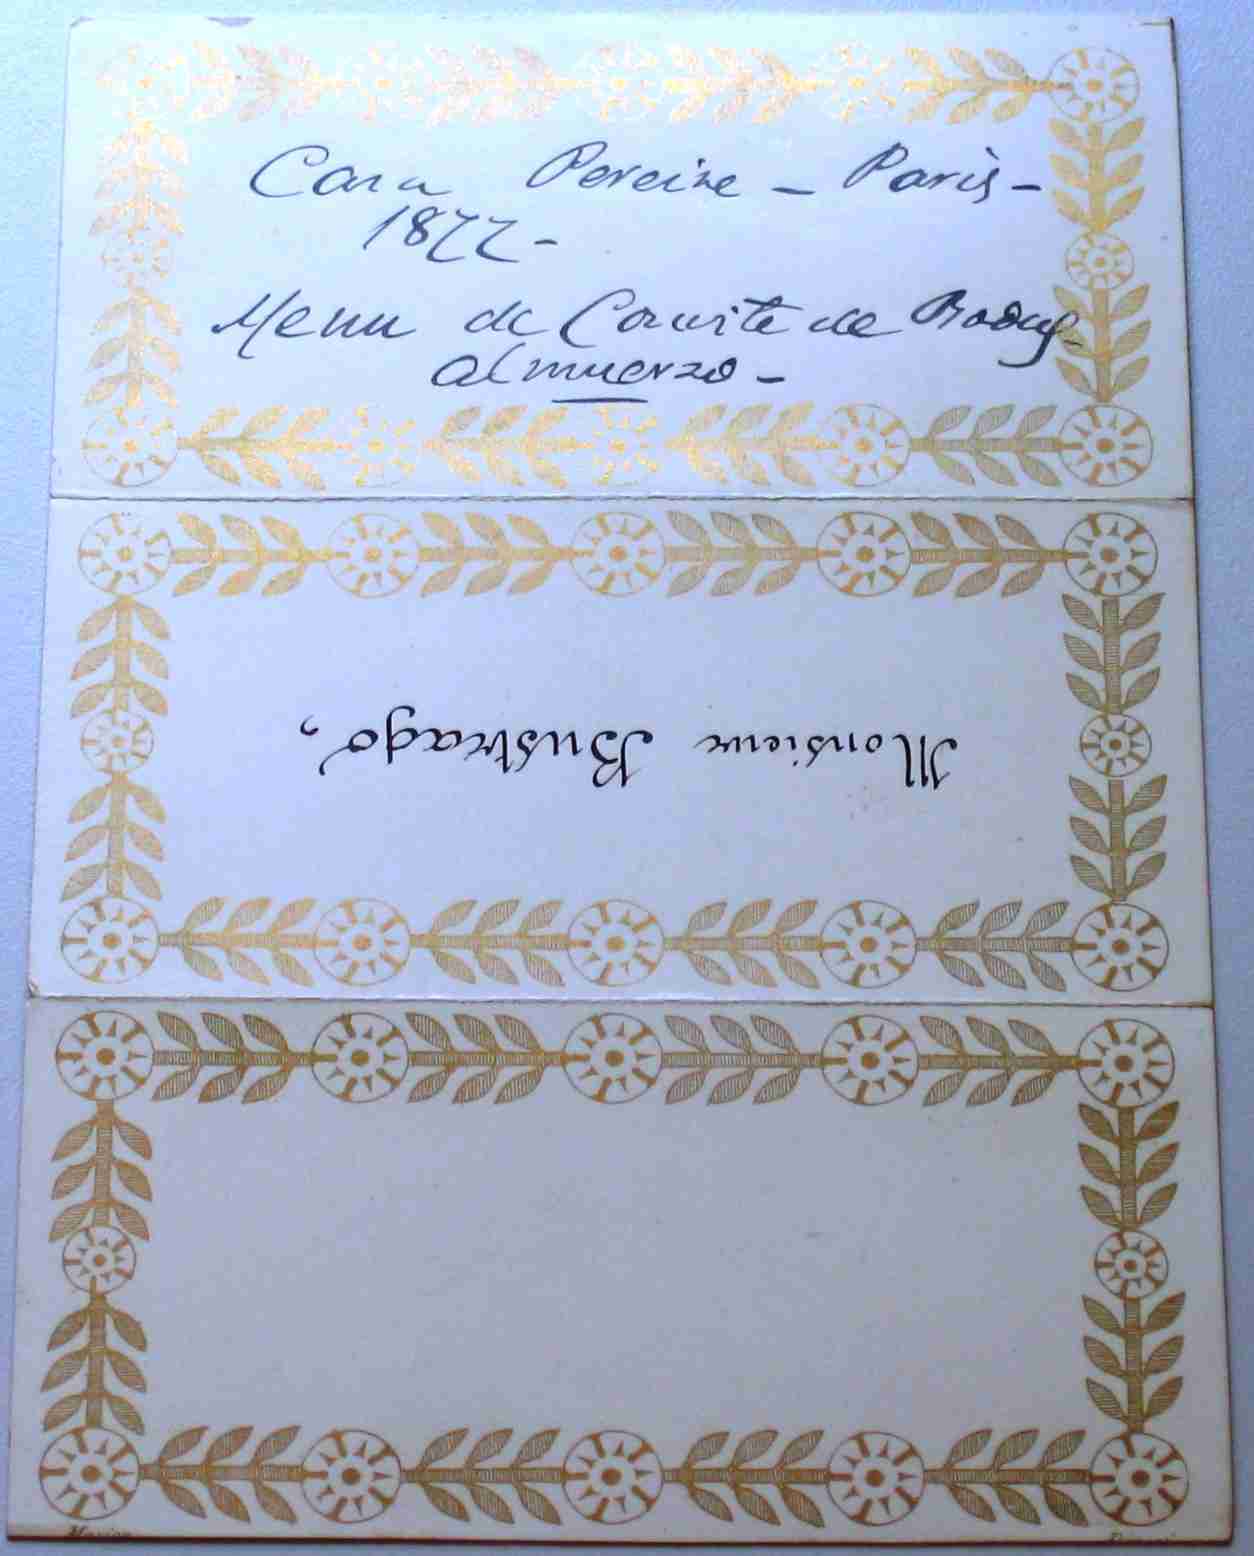 Casa Pereire - Paris -
1877 -
Menu de Convite de Boda y
almuerzo -
Monsieur Bustrago,
Marion